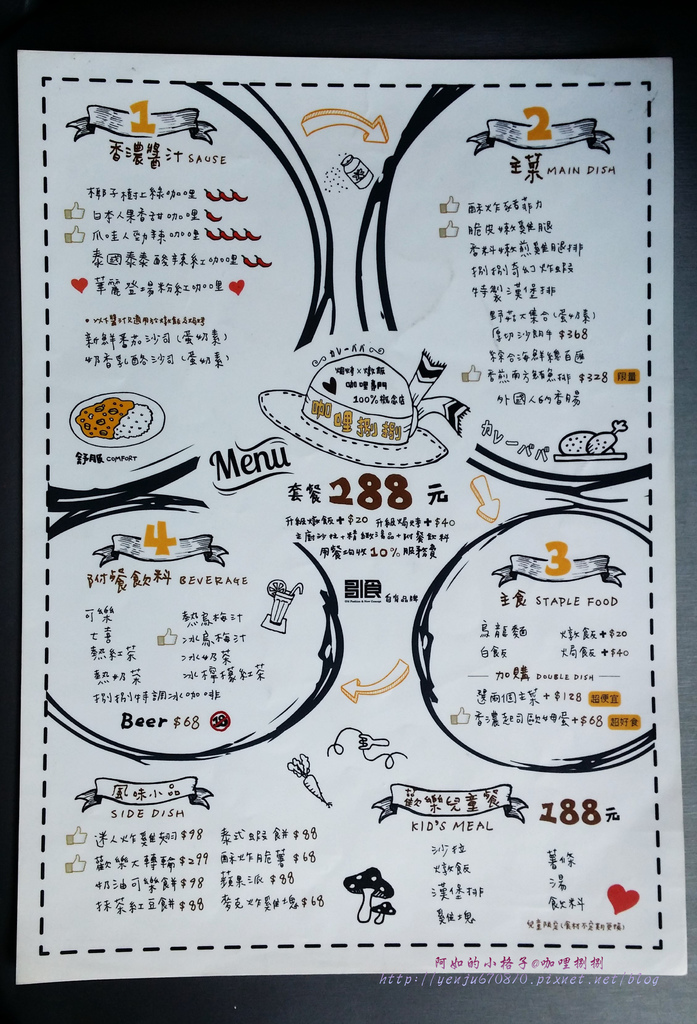 1
香濃醬汁 SAUSE
椰子樹上綠咖哩
日本人果香甜咖哩
爪哇人勁辣咖哩
泰國泰泰酸辣紅咖哩
華麗登場粉紅咖哩
新鮮番茄沙司(蛋奶素)
奶香乳酪沙司(蛋奶素)
舒服 COMFORT
2
主菜 MAIN DISH
酥炸豬菲力
脆皮嫩雞腿
香料嫩煎雞腿排
捌捌奇幻炸蝦
特製漢堡排
野菇大集合(蛋奶素)
厚切沙朗牛 $368
綜合海鮮總百匯
香煎南方鮪魚排 $328 限量
外國人的香腸
カレーパパ
カレーパパ
焗烤×燉飯
咖哩專門
100%概念店
咖哩捌捌
Menu
套餐 288 元
升級燉飯+$20 升級焗烤+$40
主廚沙拉+精緻湯品+附餐飲料
用餐均收10%服務費
引食
自有品牌
4
附餐飲料 BEVERAGE
可樂
七喜
熱紅茶
熱奶茶
捌捌特調冰咖啡
熱烏梅汁
冰烏梅汁
冰奶茶
冰檸檬紅茶
Beer $68 18
3
主食 STAPLE FOOD
烏龍麵 燉飯+$20
白飯 焗飯+$40
加購 DOUBLE DISH
選兩個主菜+$128 超便宜
香濃起司歐姆蛋+$68 超好食
風味小品
SIDE DISH
迷人炸雞翅$98 泰式蝦餅$88
歡樂大轉輪$299 酥炸脆薯$68
奶油可樂餅$98 蘋果派$88
抹茶紅豆餅$88 麥克炸雞塊$68
歡樂兒童餐 188元
KID'S MEAL
沙拉
燉飯
漢堡排
雞塊
薯條
湯
飲料
兒童限定(食材不定期更換)
阿如的小格子@咖哩捌捌
http://yenju670870.pixnet.net/blog